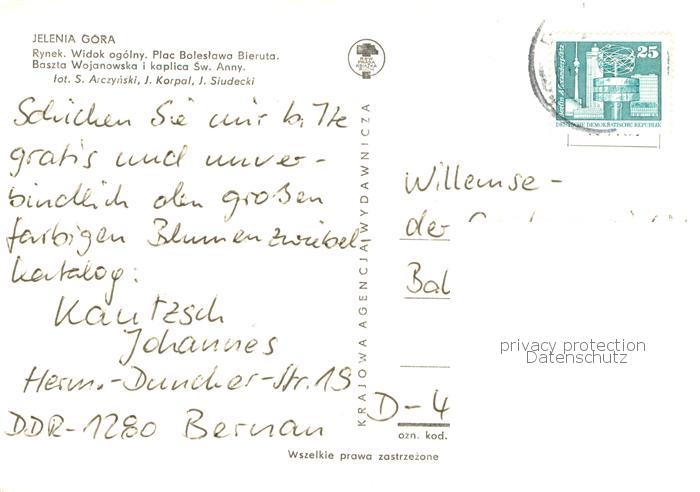 JELENIA GÓRA
Rynek. Widok ogólny. Plac Bolesława Bieruta.
Baszta Wojanowska i kaplica Św. Anny.
fot. S. Arczyński, J. Korpal, J. Siudecki
Schicken Sie mir bitte
gratis und unver-
bindlich den großen
farbigen Blumenzwiebel
katalog:
Kautzsch
Johannes
Herm.-Duncker-Str. 19
DDR-1280 Bernau
KRAJOWA AGENCJA WYDAWNICZA
25
DEUTSCHE DEMOKRATISCHE REPUBLIK
Willemse-
der
D-4
ozn. kod.
Wszelkie prawa zastrzeżone
privacy protection
Datenschutz